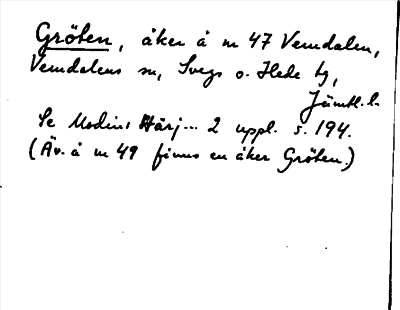 Gröten, åker å nr 47 Vemdalen,
Vemdalens sn, Svegs o. Hede tg,
Jämtl. l.
Se Modins Härj... 2 uppl. s. 194.
(Äv. å nr 49 finns en åker Gröten.)